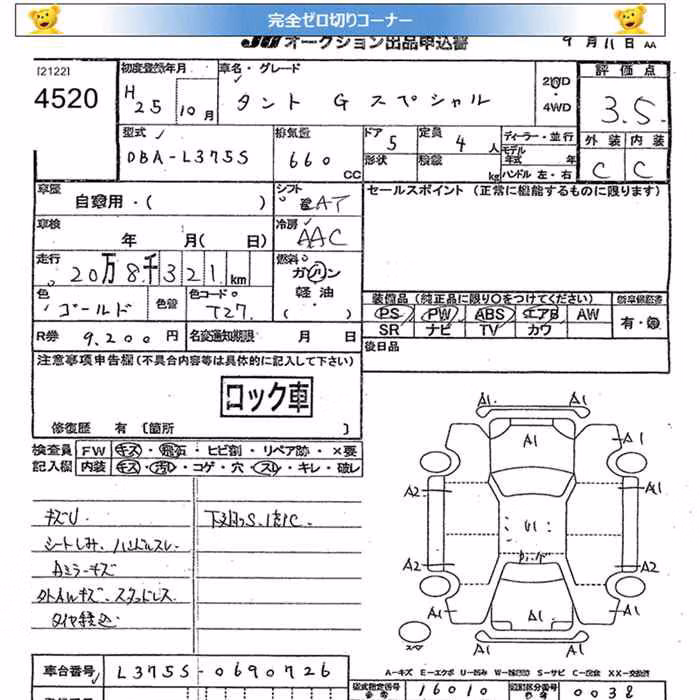 完全ゼロ切りコーナー
オークション出品申込書 9月11日 AA
[2122]
4520
初度登録年月 H25 10月
車名・グレード タント G スペシャル
2WD・4WD
評価点 3.5
外装 C 内装 C
型式 DBA-L375S
排気量 660 CC
ドア 5
形状
定員 4人
積載 kg
ディーラー・並行
モデル年式 年
ハンドル 左・右
車歴 自家用・( )
シフト AT
セールスポイント (正常に機能するものに限ります)
車検 年 月( 日)
冷房 AAC
走行 20万8千321km
燃料 ガソリン 軽油 ( )
色 ゴールド 色替
色コード T27
装備品 (純正品に限り○をつけてください)
PS PW ABS エアB AW
SR ナビ TV カワ
有・無
R券 9,200円
名変通知期限 月 日
後日品
注意事項申告欄(不具合内容等は具体的に記入して下さい)
ロック車
修復歴 有 [箇所 ]
検査員記入欄
FW キズ・飛石・ヒビ割・リペア跡・×要
内装 キズ・汚レ・コゲ・穴・スレ・キレ・破レ
キズU
シートしみ、ハンドルスレ
Aミラーキズ
タイヤ積込
A1 A1
A1 A1
A2 A1
U1
A2 A2
A1 A1 A1
A1 A1
スペア
車台番号 L375S-0690726
A-キズ E-エクボ U-凹み W-補修跡 S-サビ C-腐食 XX-交換済
型式指定番号 16010
類別区分番号 0038